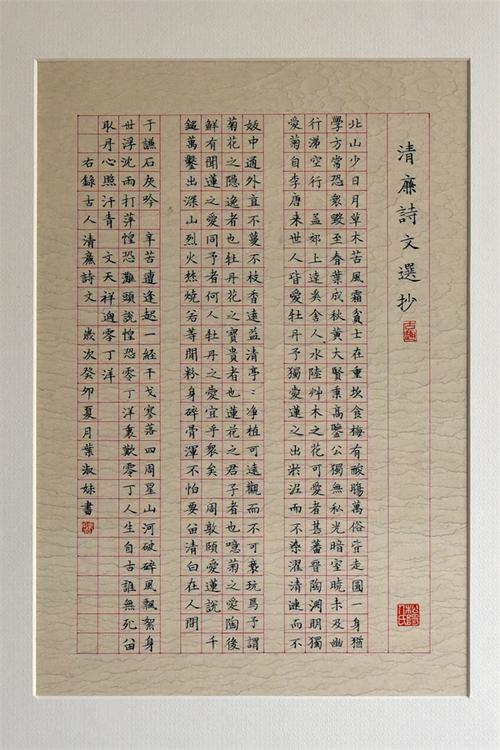 清廉詩文選抄
北山少日月草木苦風霜貧士在重坎食梅有酸腸萬俗皆走圓一身猶
學方常恐衆毀至春葉成秋黃大賢秉高鑒公獨無私光暗室曉未及幽
行涕空行 孟郊上達奚舍人 水陸艸木之花可愛者甚蕃晉陶淵明獨
愛菊自李唐来世人皆愛牡丹予獨愛蓮之出淤泥而不染濯清漣而不
妖中通外直不蔓不枝香遠益清亭〻淨植可遠觀而不可褻玩焉予謂
菊花之隐逸者也牡丹花之寶貴者也蓮花之君子者也噫菊之愛陶後
鮮有聞蓮之愛同予者何人牡丹之愛宜乎衆矣 周敦頤愛蓮説 千
鎚萬鑿出深山烈火焚燒若等閒粉身碎骨渾不怕要留清白在人間
于謙石灰吟 辛苦遭逢起一經干戈寥落四周星山河破碎風飄絮身
世浮沈雨打萍惶恐難頭説惶恐零丁洋裏歎零丁人生自古誰無死留
取丹心照汗青 文天祥過零丁洋
右錄古人清廉詩文 歲次癸卯夏月葉淑妹書